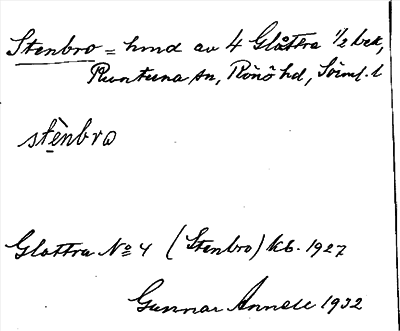 Stenbro = hmd av 4 Glåttra 1/2 bek,
Runtuna sn, Rönö hd, Söml. l
stènbro
Glottra No 4 (Stenbro) kb. 1927
Gunnar Annell 1932